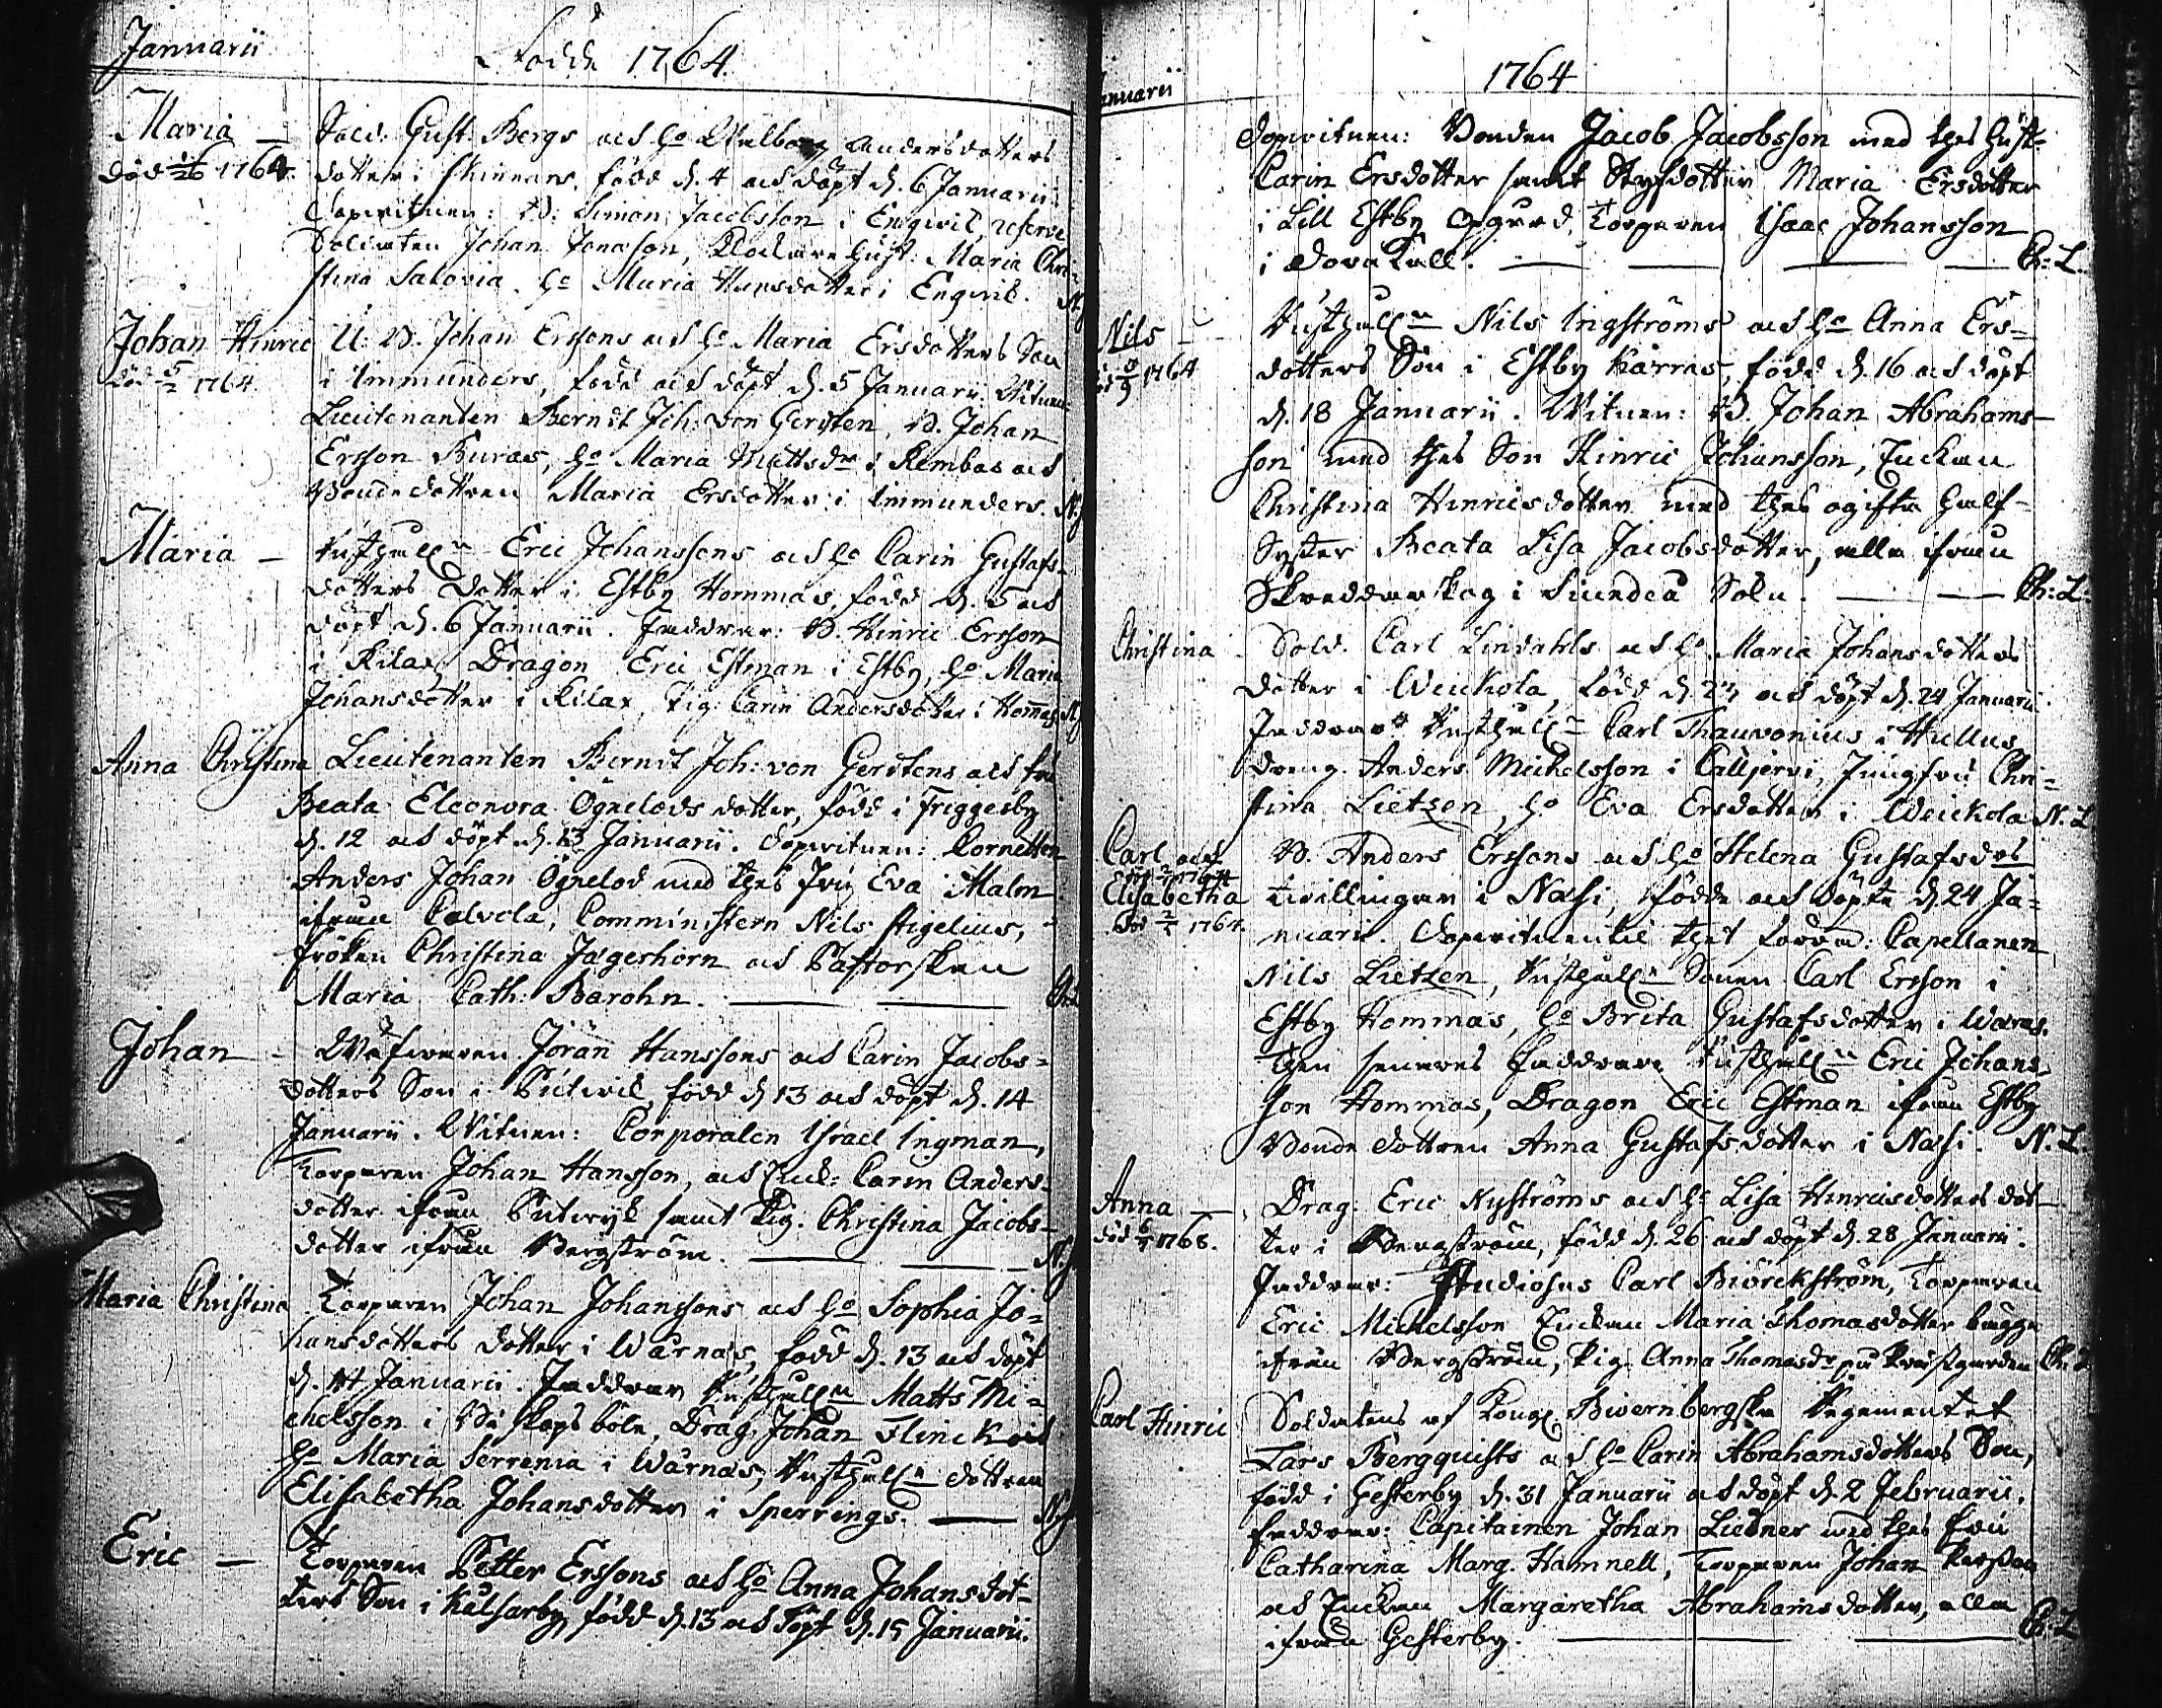 Januarii
Födde 1764.
Maria –
död 1/26 1764.
Sold: Gust. Bergs och h:o Walborg Andersdotters
dotter i Skinnars, född d. 4 och döpt d. 6 Januarii.
Dopwitnen: B: Simon Jacobsson i Engwik, reserve
Soldaten Johan Jonasson, Klockare hust: Maria Chri-
stina Salovia, h:o Maria Hansdotter i Engwik.
Johan Hinric
död 5/2 1764.
U: B. Johan Ersons och h:o Maria Ersdotters Son
i Immunders, född och döpt d. 5 Januarii. Witnen
Lieutenanten Berndt Joh: von Gerdten, B. Johan
Ersson Buras, h:o Maria Mattsdr i Rembas och
Bondedottren Maria Ersdotter i Immunders. N:
Maria –
Rusthåll:n Eric Johanssons och h:o Carin Gustafs-
dotters dotter i Estby Hommas, född d. 5 och
döpt d. 6 Januarii. Faddrar: B. Hinric Ersson
i Kilax, Dragon Eric Estman i Estby, h:o Maria
Johansdotter i Kilax, Pig: Carin Andersdotter i Hommas
Anna Christina
Lieutenanten Berndt Joh: von Gerdtens och fru
Beata Eleonora Ögnelods dotter, född i Friggesby
d. 12 och döpt d. 13 Januarii. Dopwitnen: Cornetten
Anders Johan Ögnelod med thes fru Eva Malm
ifrån Calvola, Comministern Nils Stigelius,
fröken Christina Jægerhorn och Pastorskan
Maria Cath: Barohn. —— Ch:L
Johan –
Wäfwaren Jöran Hanssons och Carin Jacobs=
dotters Son i Pickwik, född d. 13 och döpt d. 14
Januarii. Witnen: Corporalen Israel Ingman,
Torparen Johan Hansson, och Enk: Carin Anders-
dotter ifrån samt Pig. Christina Jacobs-
dotter ifrån Bergström. ——
Maria Christina
Torparen Johan Johanssons och h:o Sophia Jo=
hansdotters dotter i Wårnäs, född d. 13 och döpt
d. 14 Januarii. Faddrar Rusthåll:n Matts Mi=
chelsson i Biskopsböle, Drag: Johan Flinck och
h:o Maria Serrenia i Wårnäs, Rusthåll:n dottren
Elisabetha Johansdotter i Sperrings. ——
Eric –
Torparen Petter Erssons och h:o Anna Johansdot-
ters Son i Kulsarby född d. 13 och döpt d. 15 Januarii.
Januarii
1764
Dopwitnen: Bonden Jacob Jacobsson med thes hust:
Carin Ersdotter samt Styfdotter Maria Ersdotter
i Lill Estby Opgård, Torparen Isaac Johansson
i Dorakall. —— Ch:L.
Nils –
död 8/9 1764
Rusthåll:n Nils Ingströms och h:o Anna Ers-
dotters Son i Estby Karras, född d. 16 och döpt
d. 18 Januarii. Witnen: B. Johan Abrahams-
son med thes Son Hinric Johansson, Enckan
Christina Hinricsdotter med thes ogifta half-
Syster Beata Lisa Jacobsdotter, alla ifrån
Skreddarskog i Siundeå Sokn. —— Ch:L:
Christina
Sold. Carl Lindahls och h:o Maria Johansdotters
dotter i Weickola, född d. 23 och döpt d. 24 Januarii.
Faddrar Rusthåll:n Carl Thauvonius i Hullus,
Dreng. Anders Michelsson i Calljervi, Jungfru Chri=
stina Lietzen, h:o Eva Ersdotter i Weickola N. L
Carl och
Elisabetha
död 2/2 1764.
B. Anders Erssons och h:o Helena Gustafsdrs
twillingar i Nasi, födde och döpte d. 24 Ja=
nuarii. Dopwitnen til thet förra: Capellanen
Nils Lietzen, Rusthåll:n Sonen Carl Ersson i
Estby Hommas, h:o Brita Gustafsdotter i Waras.
Then senares faddrar Rusthåll:n Eric Johans-
son Hommas, Dragon Eric Estman ifrån Estby
Bonde dottren Anna Gustafsdotter i Nasi. N. L.
Anna –
död 6/7 1768.
Drag: Eric Nyströms och h:o Lisa Hinricsdotters dot-
ter i Bergström, född d. 26 och döpt d. 28 Januarii.
Faddrar: Studiosus Carl Biörckström, Torparen
Eric Michelsson Enckan Maria Thomasdotter bägge
ifrån Bergström, Pig. Anna Thomasdr på Prestgården Ch:L
Carl Hinric
Soldatens af Kongl. Biörnbergska Regementet
Lars Bergquists och h:o Carin Abrahamsdotters Son,
född i Gesterby d. 31 Januarii och döpt d. 2 Februarii.
Faddrar: Capitainen Johan Liedner med thes fru
Catharina Marg. Hamnell, Torparen Johan
och Enckan Margaretha Abrahamsdotter, alla
ifrån Gesterby. —— Ch:L